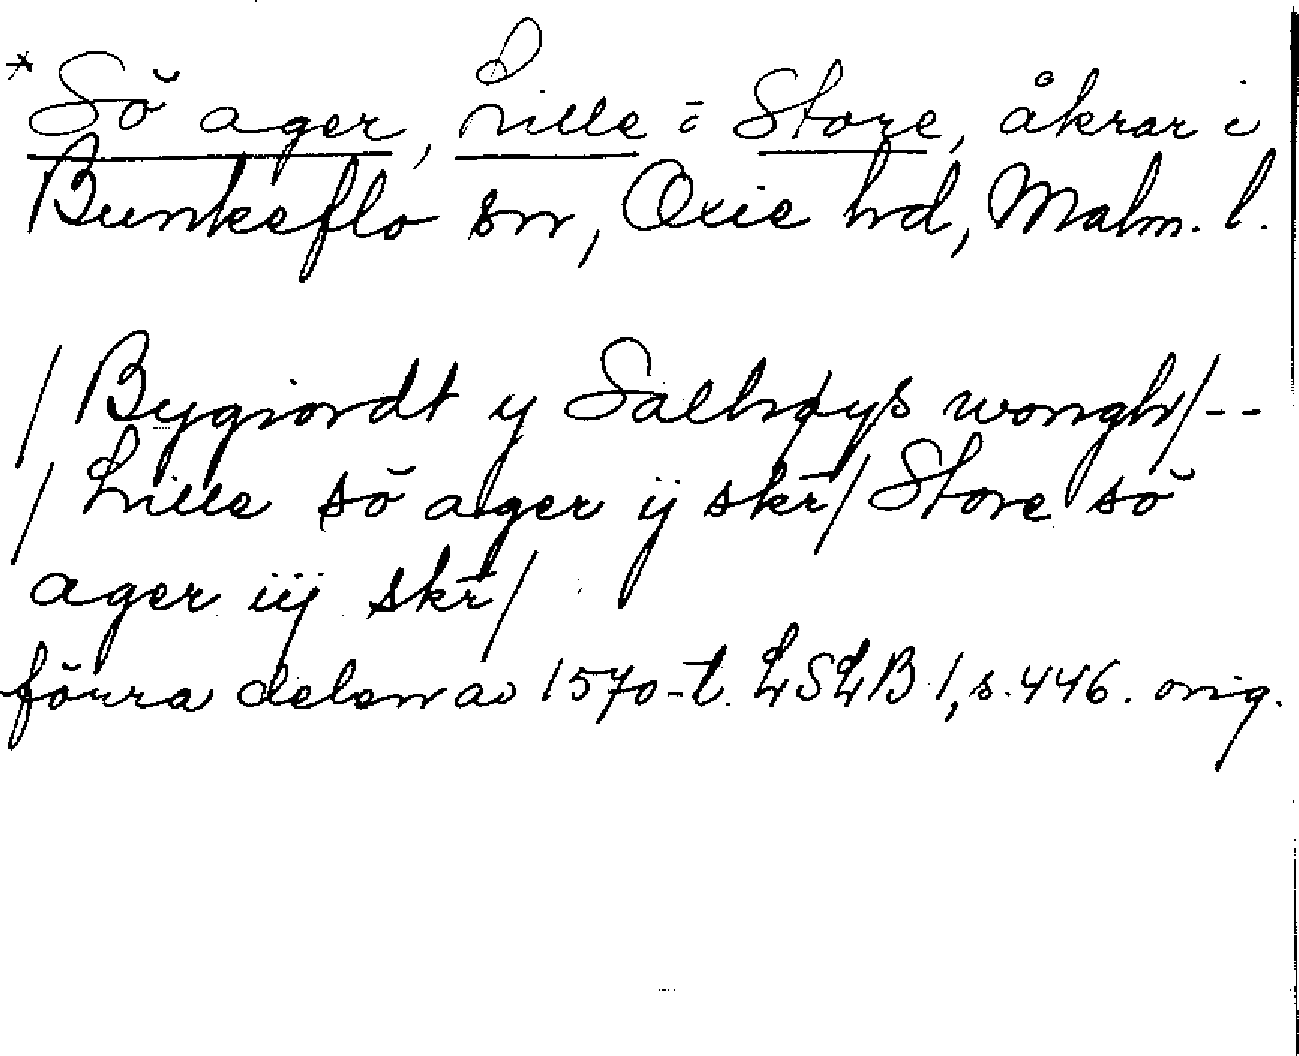 * Sö ager, Lille o Store, åkrar i
Bunkeflo sn, Oxie hd, Malm. l.
/ Bygiordt y Salhøys wongh/--
/ Lille sö ager ij skr̄/ Store sö
ager iij skr̄/
förra delen av 1570-t. LSLB 1, s. 446. orig.